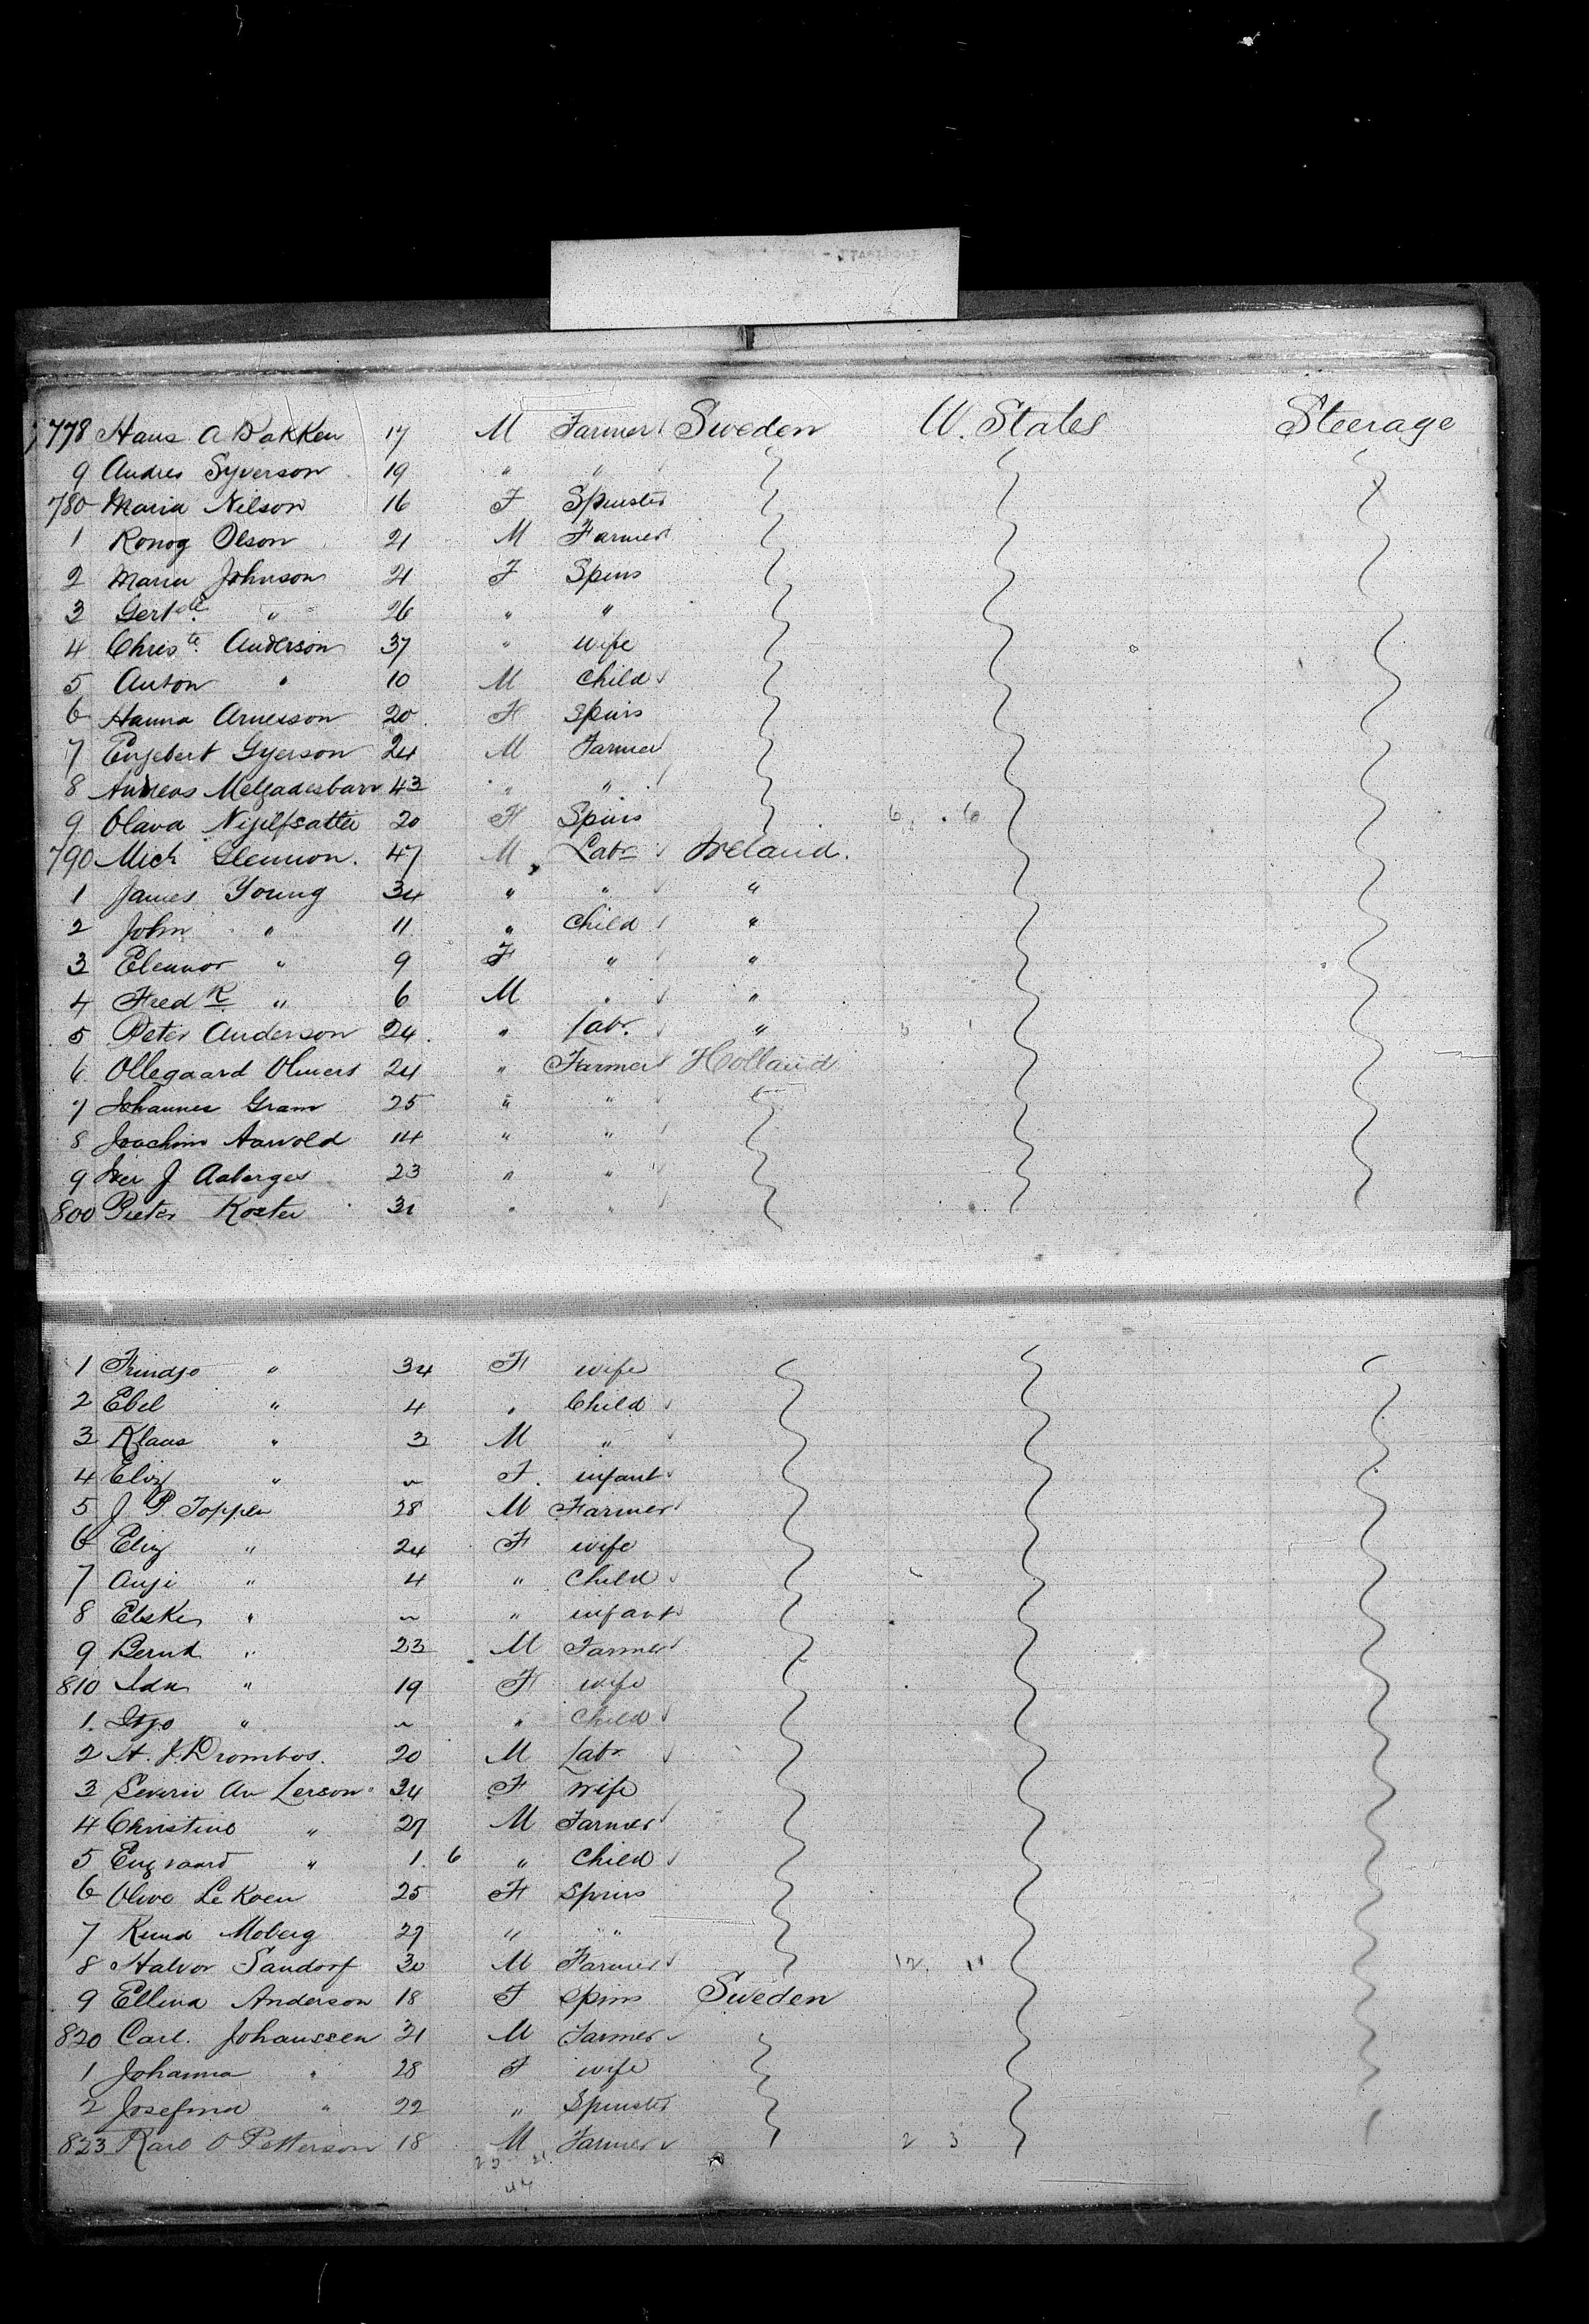 778 Hans A Bakken 17 M Farmer Sweden U. States Steerage
9 Andres Syverson 19 " "
780 Maria Nilson 16 F Spinster
1 Ronog Olson 21 M Farmer
2 Maria Johnson 21 F Spins
3 Gertde " 26 " "
4 Christe Anderson 37 " wife
5 Anton " 10 M Child
6 Hanna Arnesson 20 F Spins
7 Engebert Gyerson 24 M Farmer
8 Andreas 43 " "
9 Olava 20 F Spins 6 6
790 Mich Glennon. 47 M Labr Ireland.
1 James Young 34 " " "
2 John " 11 " Child "
3 Elennor " 9 F " "
4 Fredk " 6 M " "
5 Peter Anderson 24 " Labr. "
6 Ollegaard Olmers 24 " Farmer Holland
7 Johannes Gram 25 " "
8 Joachim Aarvold 14 " "
9 Iver J Aaberges 23 " "
800 Pieter Koster 31 " "
1 Trindje " 34 F wife
2 Ebel " 4 " Child
3 Klaas " 3 M "
4 Eliz " ~ F. infant
5 J P Toppen 28 M Farmer
6 Eliz " 24 F wife
7 Anje " 4 " Child
8 Elske " ~ " infant
9 Bernd " 23 M Farmer
810 Ida " 19 F wife
1. " ~ " Child
2 St. J. Drombos. 20 M Labr
3 Severin An Lerson 34 F wife
4 Christine " 27 M Farmer
5 Engvaard " 1. 6 " Child
6 Olivo Le Koen 25 F Spins
7 Knud Moberg 27 " "
8 Halvor Sandorf 30 M Farmer 12. 11
9 Ellina Anderson 18 F Spins Sweden
820 Carl. Johanssen 31 M Farmer
1 Johanna " 28 F wife
2 Josefina " 22 " Spinster
823 Karl O Petterson 18 M Farmer 2 3